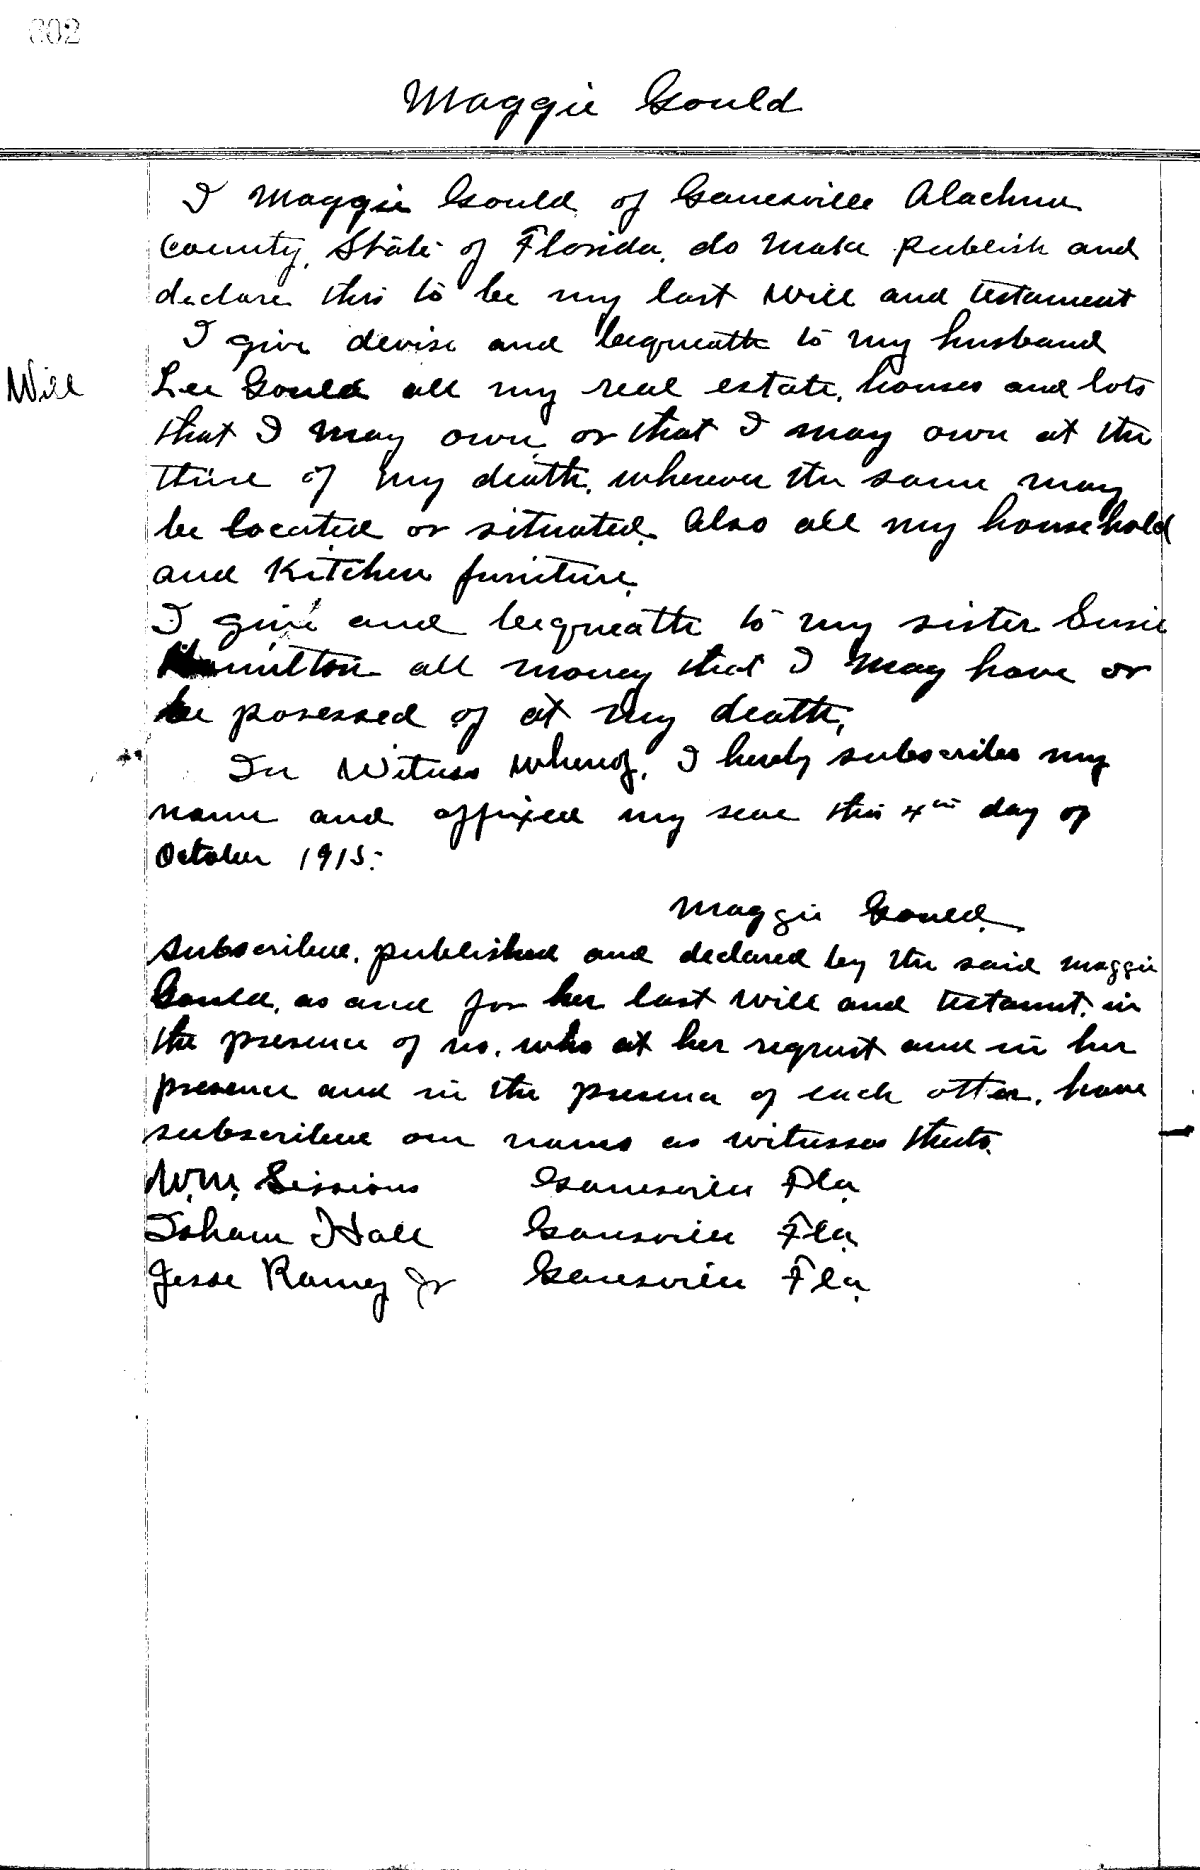 302
Maggie Gould
I Maggie Gould of Gainesville Alachua
County, State of Florida, do make publish and
declare this to be my last Will and testament
I give devise and bequeath to my husband
Will
Lee Gould all my real estate, houses and lots
that I may own or that I may own at the
time of my death, wherever the same may
be located or situated. Also all my household
and Kitchen furniture.
I give and bequeath to my sister Susie
Hamilton all money that I may have or
be posessed of at my death,
In Witness whereof, I hereby subscribe my
name and affixed my seal this 4th day of
October 1915.
Maggie Gould
Subscribed, published and declared by the said Maggie
Gould, as and for her last will and testament, in
the presence of us, who at her request and in her
presence and in the presence of each other, have
subscribed our names as witnesses thereto.
W.M. Sessions Gainesville Fla
Isham Hall Gainesville Fla
Jesse Ramey Jr Gainesville Fla